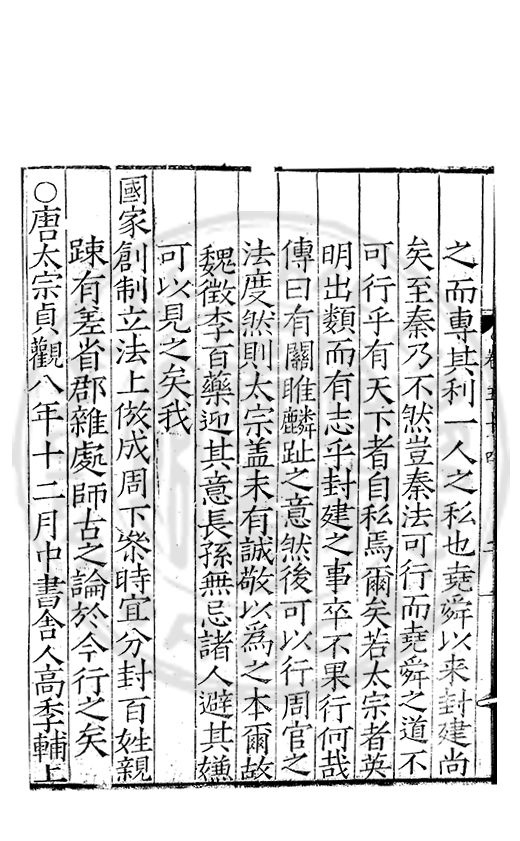 之而專其利一人之私也堯舜以来封建尚
矣至秦乃不然豈秦法可行而堯舜之道不
可行乎有天下者自私焉爾矣若太宗者英
明出類而有志乎封建之事卒不果行何哉
傳曰有關雎麟趾之意然後可以行周官之
法度然則太宗盖未有誠敬以爲之本爾故
魏徵李百藥迎其意長孫無忌諸人避其嫌
可以見之矣我
國家創制立法上倣成周下叅時宜分封百姓親
踈有差省郡雜處師古之論於今行之矣
○唐太宗貞觀八年十二月中書舍人高季輔上